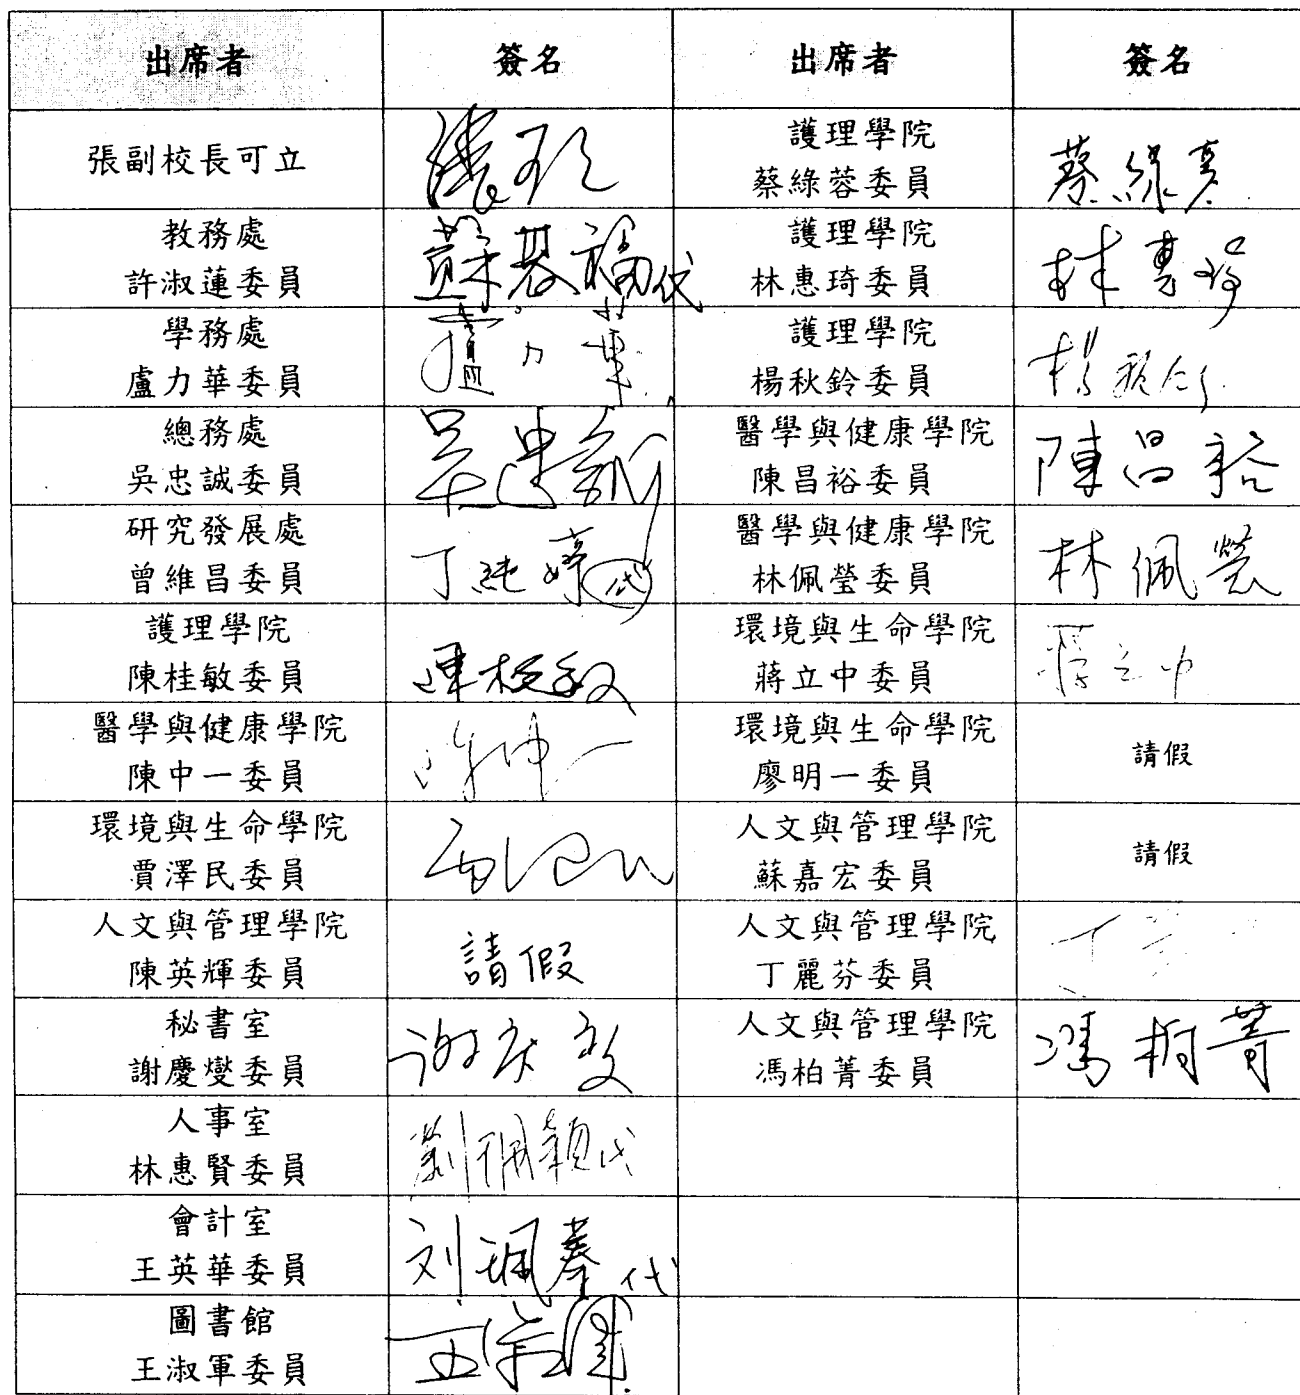 出席者
簽名
出席者
簽名
張副校長可立
護理學院
蔡綠蓉委員
蔡綠蓉
教務處
許淑蓮委員
蘇基福代
護理學院
林惠琦委員
林惠琦
學務處
盧力華委員
盧力華
護理學院
楊秋鈴委員
總務處
吳忠誠委員
吳忠誠
醫學與健康學院
陳昌裕委員
陳昌裕
研究發展處
曾維昌委員
醫學與健康學院
林佩瑩委員
林佩瑩
護理學院
陳桂敏委員
陳桂敏
環境與生命學院
蔣立中委員
蔣立中
醫學與健康學院
陳中一委員
環境與生命學院
廖明一委員
請假
環境與生命學院
賈澤民委員
人文與管理學院
蘇嘉宏委員
請假
人文與管理學院
陳英輝委員
請假
人文與管理學院
丁麗芬委員
秘書室
謝慶燮委員
人文與管理學院
馮柏菁委員
馮柏菁
人事室
林惠賢委員
會計室
王英華委員
圖書館
王淑軍委員